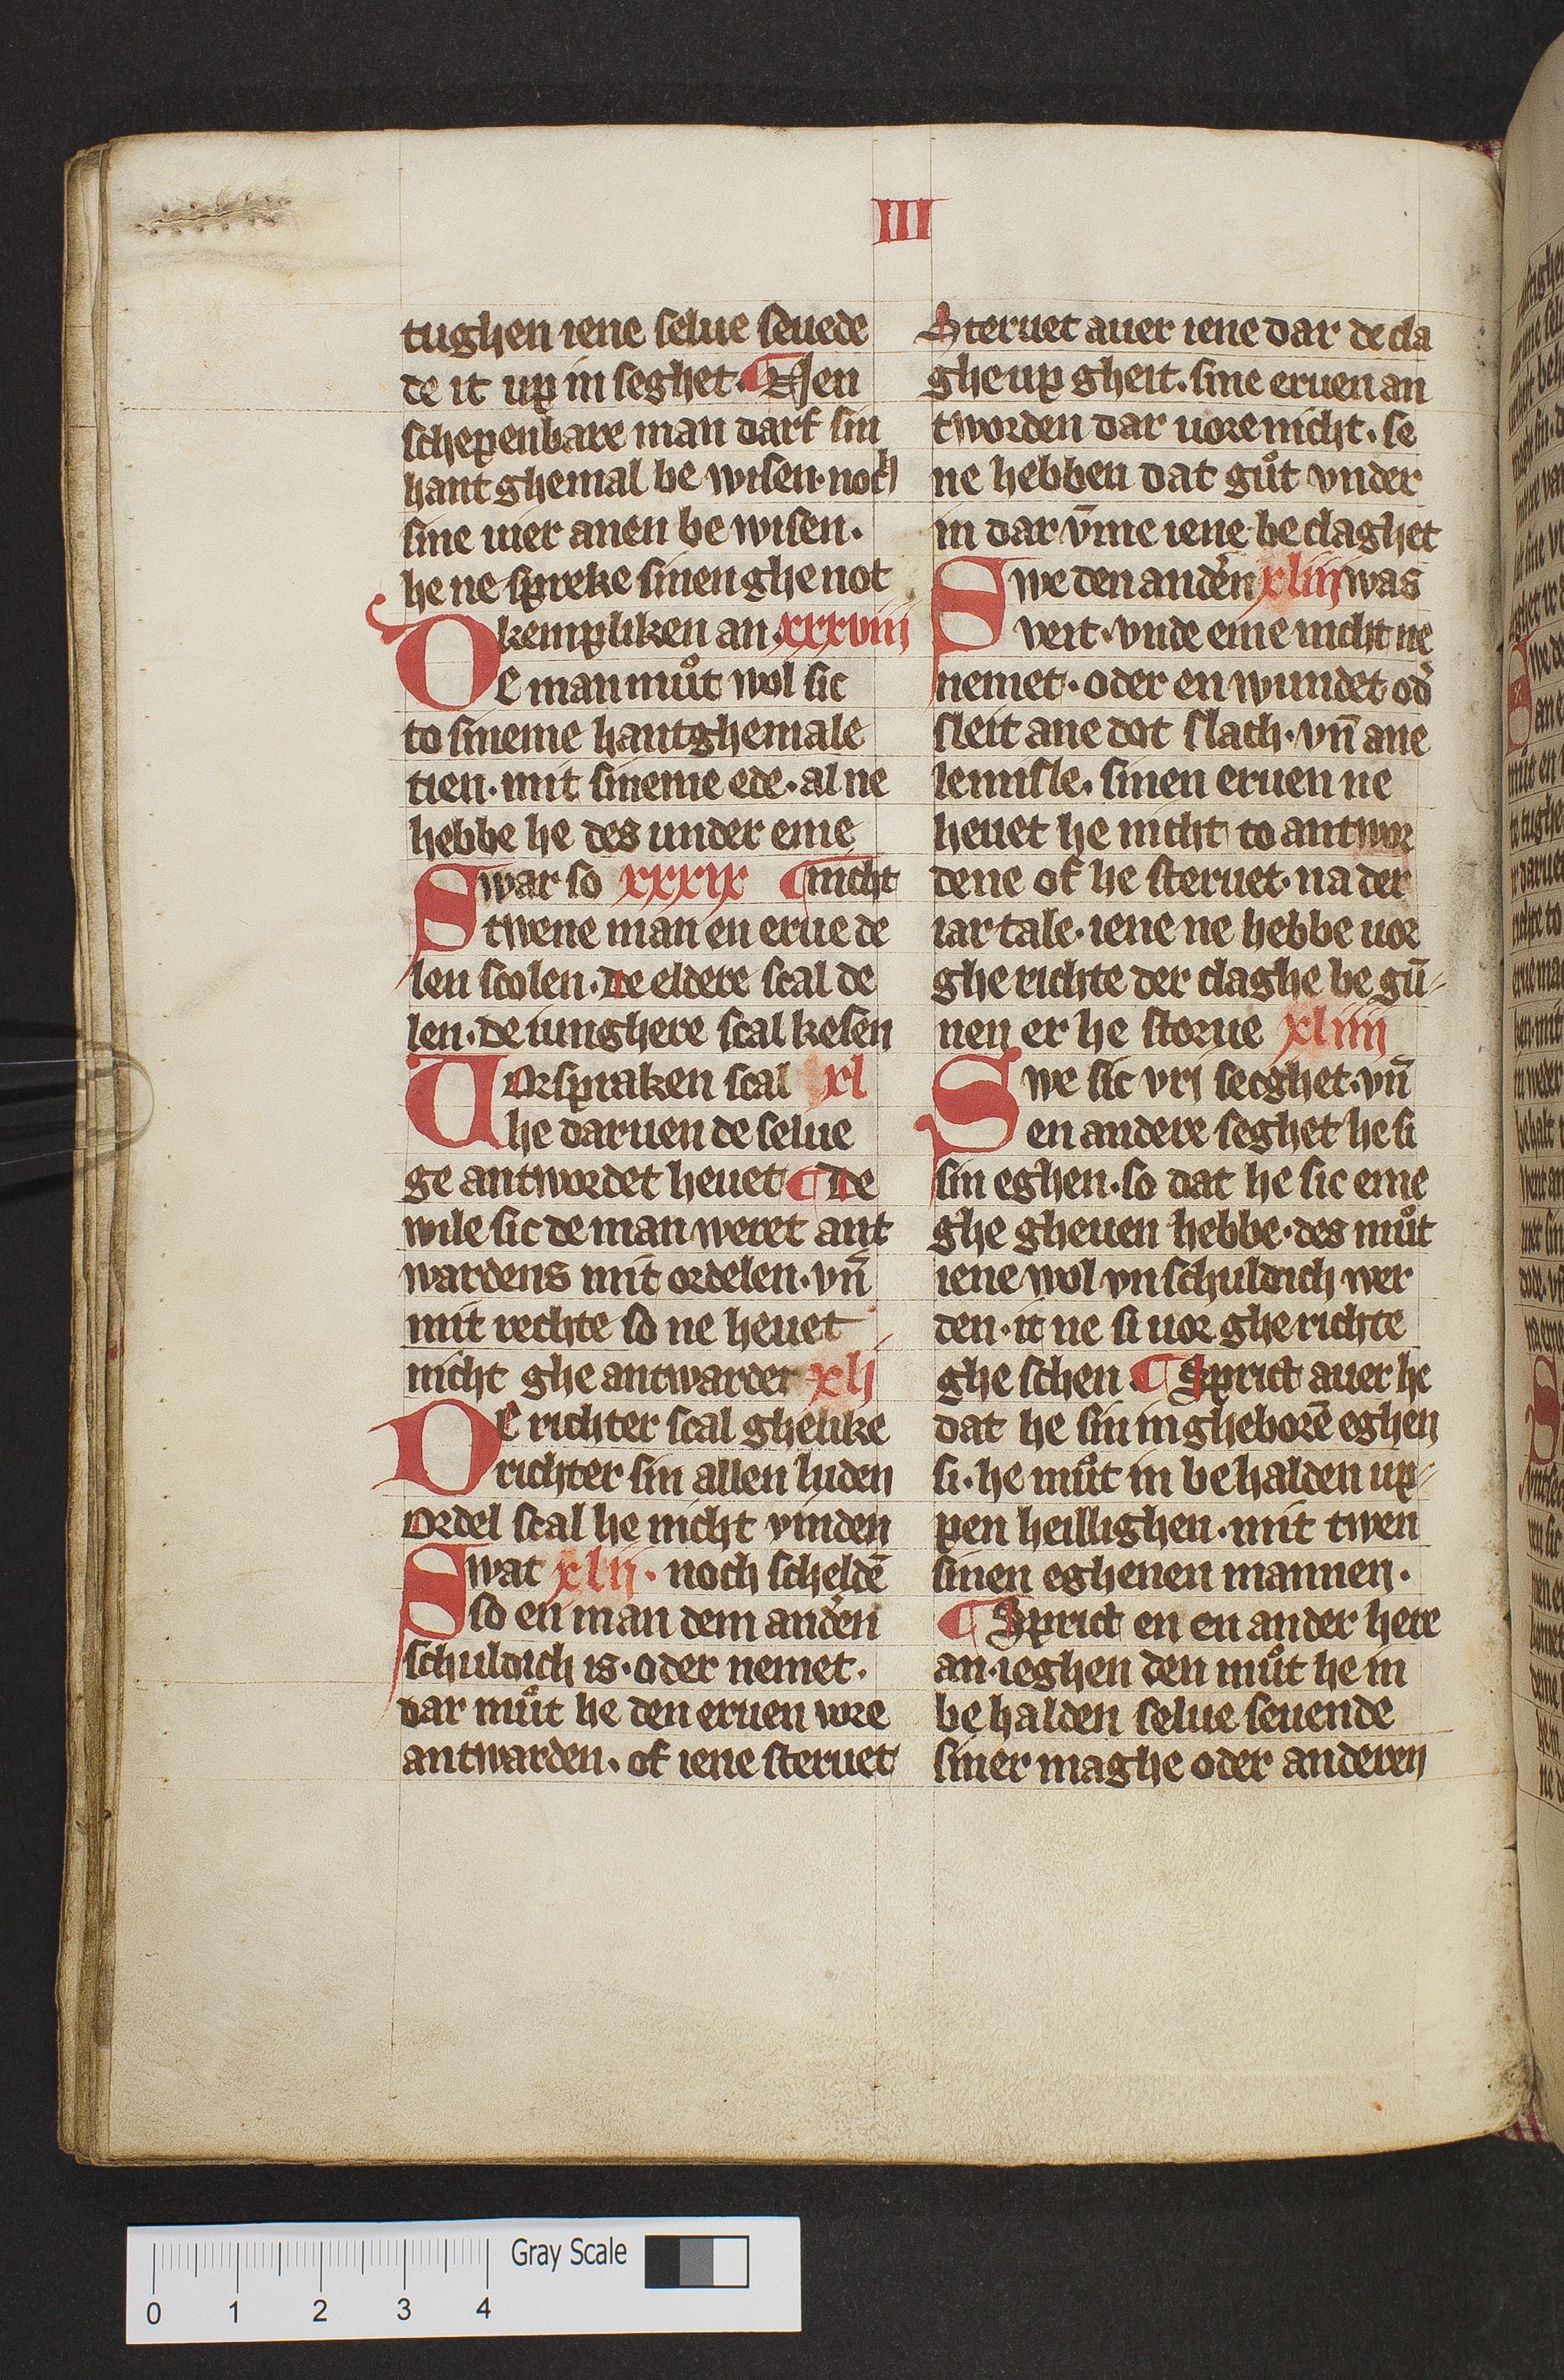 III
tughen iene selue seuede
de it up in seghet. ¶ Nen
schepenbare man darf sin
hant ghemal be wisen· noch
sine uier anen be wisen.
he ne spreke sinen ghe not
kempliken an. xxxviii
De man můt wol sic
to sineme hantghemale
tien· mit sineme ede· al ne
hebbe he des under eme
Swar so xxxix ¶ nicht
twene man en erue de
len scolen. De eldere scal de
len. De iunghere scal kesen
Uorspraken scal xl
he daruen de selue
ge antwordet heuet ¶ De
wile sic de man weret ant
wardens mit ordelen· vn̄
mit rechte so ne heuet
nicht ghe antwardet xli
De richter scal ghelike
richter sin allen luden
Ordel scal he nicht vinden
Swat xlii· noch scheldē
so en man dem andern
schuldich is· oder nemet.
dar můt he den eruen vore
antwarden. of iene steruet
Steruet auer iene dar de cla
ghe up gheit. sine eruen an
tworden dar uore nicht. se
ne hebben dat gůt vnder
in dar v̄me iene be claghet
Swe den andern xliii was
veit. vnde eme nicht ne
nemet. oder en wundet od'
sleit ane dot slach· vn̄ ane
lemisle. sinen eruen ne
heuet he nicht to antwor
dene of he steruet. na der
iar tale. iene ne hebbe uor
ghe richte der claghe be gū-
nen er he storue xliiii
Swe sic vri secghet. vn̄
en andere seghet he si
sin eghen. so dat he sic eme
ghe gheuen hebbe. des můt
iene wol vnschuldich wer
den. it ne si uor ghe richte
ghe schen. ¶ Sprict auer he
dat he sin in gheborē eghen
si. he můt in be halden up-
pen heillighen. mit twen
sinen eghenen mannen.
¶ Sprict en en ander here
an. ieghen den můt he in
be halden selue seuende
siner maghe oder anderen
Gray Scale
0 1 2 3 4